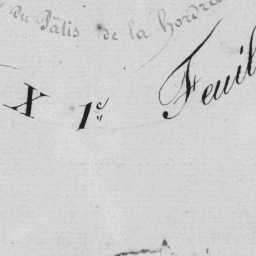 du Pâtis de la hordre
X 1e. Feuil